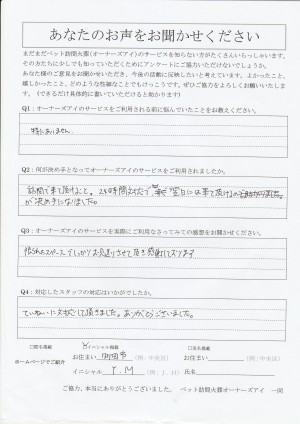 あなたのお声をお聞かせください
まだまだペット訪問火葬(オーナーズアイ)のサービスを知らない方がたくさんいらっしゃいます。
その方たちに少しでも知っていただくためにアンケートにご協力いただけないでしょうか。
あなた様のご意見をお聞かせいただき、今後の活動に反映したいと考えています。よかったこと、
嬉しかったこと、どのような些細なことでもけっこうです。ぜひご協力をよろしくお願いいたします。(できるだけ具体的に書いていただけると助かります)
Q1:オーナーズアイのサービスをご利用される前に悩んでいたことをお教えください。
特にありません。
Q2:何が決め手となってオーナーズアイのサービスをご利用されましたか。
訪問で来て頂けること。24時間対応で
が決め手になりました。
Q3:オーナーズアイのサービスを実際にご利用なさってみての感想をお聞かせください。
限られたスペースでしっかりお見送りさせて頂き感謝しております
Q4:対応したスタッフの対応はいかがでしたか。
ていねいに対応して頂きました。ありがとうございました。
□匿名掲載 イニシャル掲載 □実名掲載
ホームページでご紹介 お住まい 町田市 (例:中央区) お住まい (例:中央区)
イニシャル Y.M (例:J.H) 氏名
ご協力、本当にありがとうございました。 ペット訪問火葬オーナーズアイ 一同